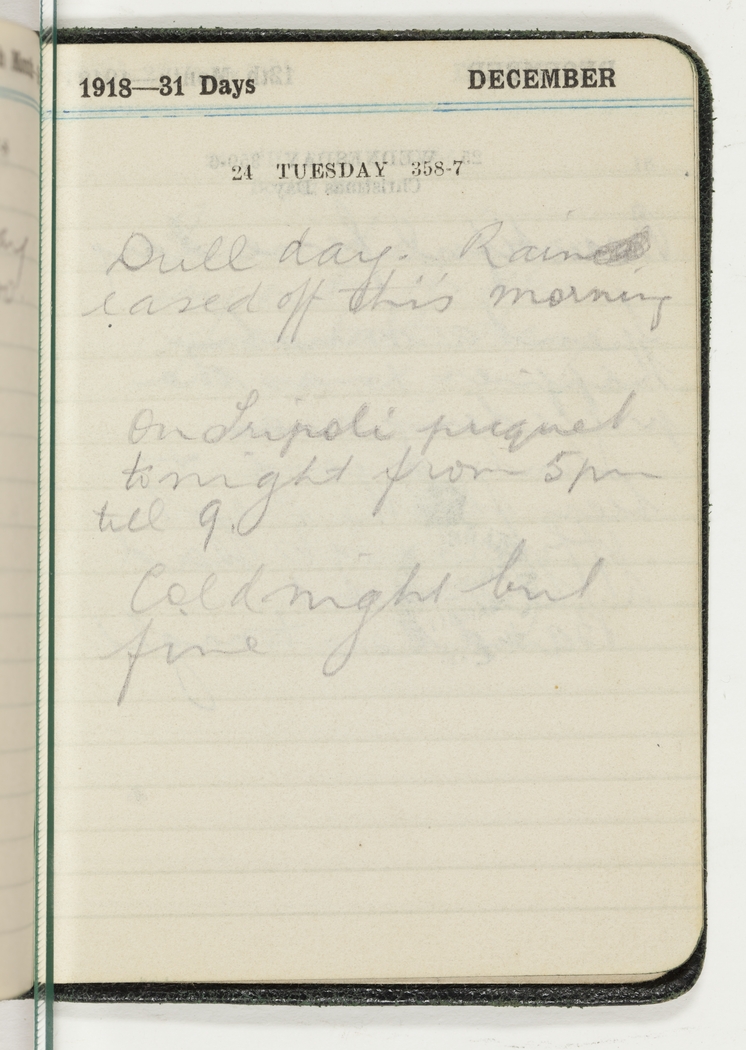 1918—31 Days DECEMBER
24 TUESDAY 358-7
Dull day. Rain
eased off this morning
On Tripoli picquet
tonight from 5pm
till 9.
Cold night but
fine